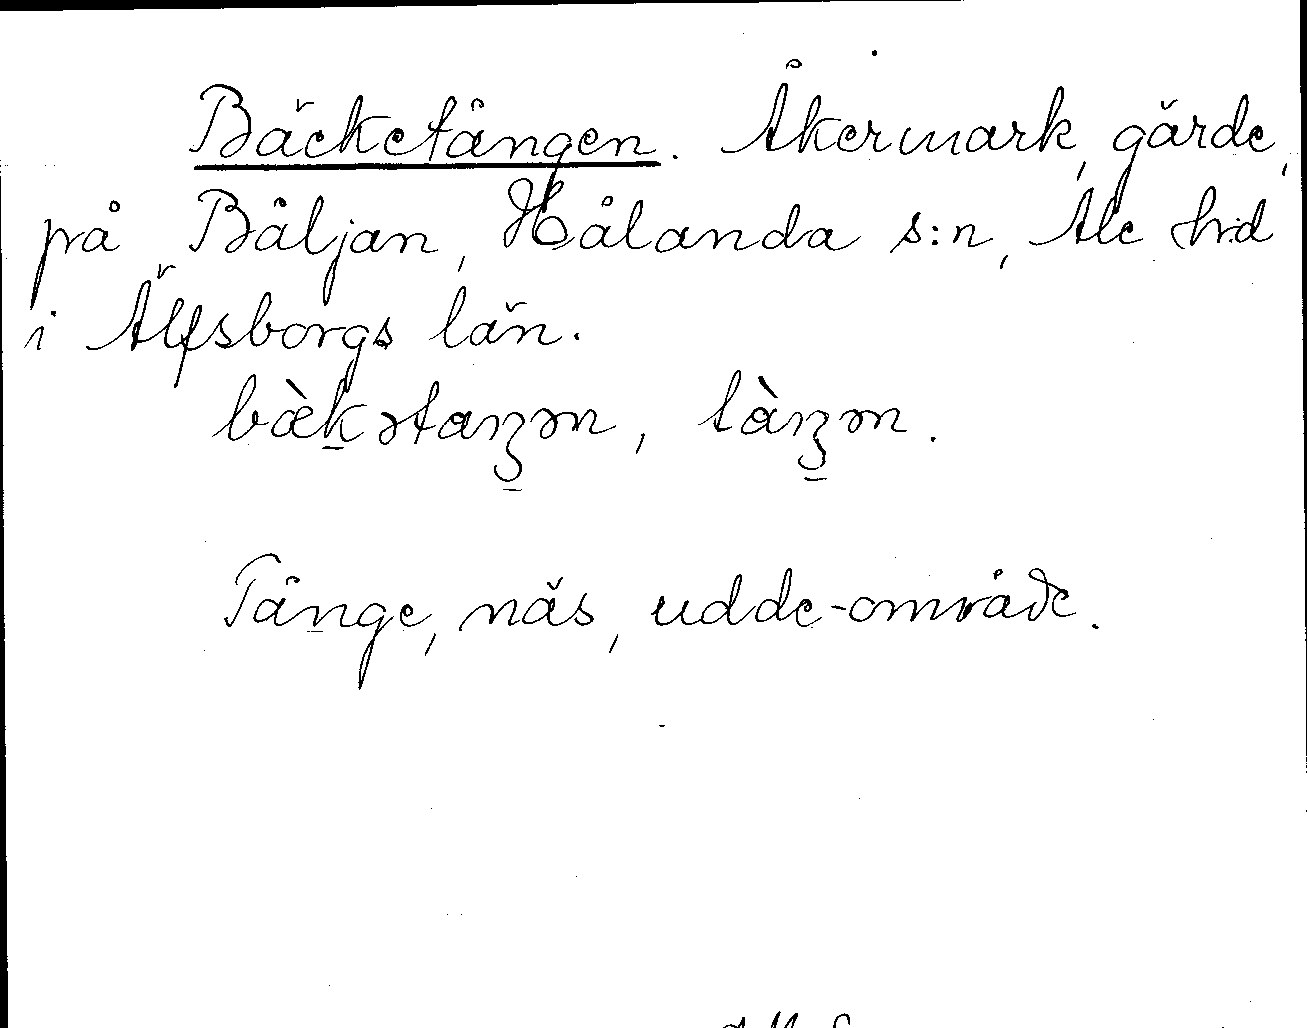 Bäcketången. Åkermark, gärde,
på Båljan, Hålanda s:n, Ale h:d
i Älfsborgs län.
bæ̀k̠ətaŋən, tàŋən.
Tånge, näs, udde-område.